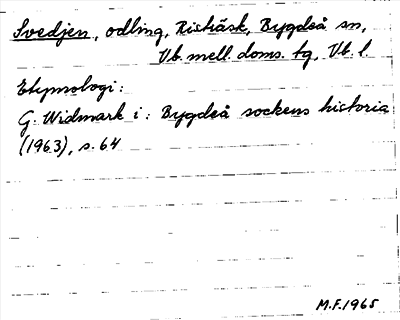 Svedjen, odling, Risträsk, Bygdeå sn,
Vb. mell. doms. tg, Vb. l.
Etymologi:
G. Widmark i: Bygdeå sockens historia
(1963), s. 64
M.F. 1965